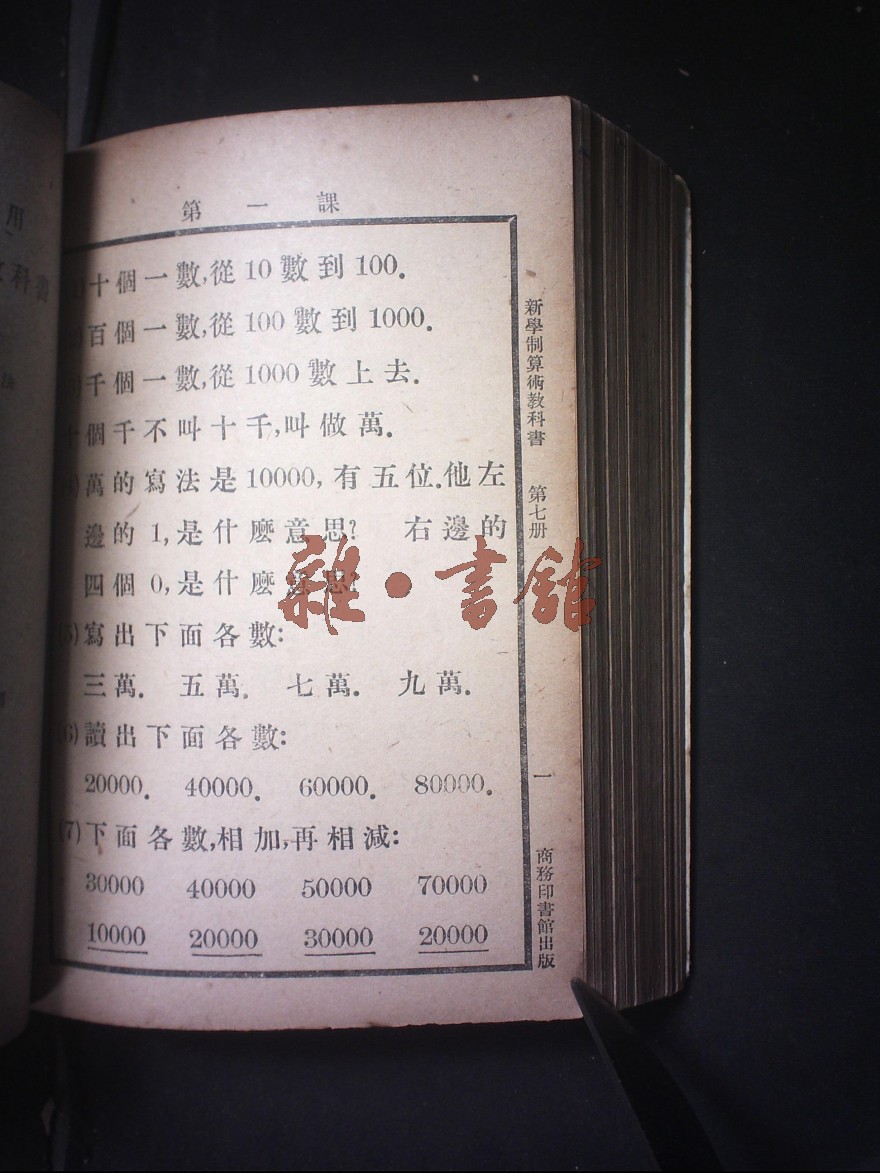 用
科書
法
第一課
十個一數,從10數到100.
百個一數,從100數到1000.
千個一數,從1000數上去.
個千不叫十千,叫做萬.
)萬的寫法是10000,有五位.他左
邊的1,是什麽意思? 右邊的
四個0,是什麽意思?
(5)寫出下面各數:
三萬. 五萬. 七萬. 九萬.
(6)讀出下面各數:
20000. 40000. 60000. 80000.
(7)下面各數,相加,再相減:
30000 40000 50000 70000
10000 20000 30000 20000
新學制算術教科書 第七册 一 商務印書館出版
雜·書館